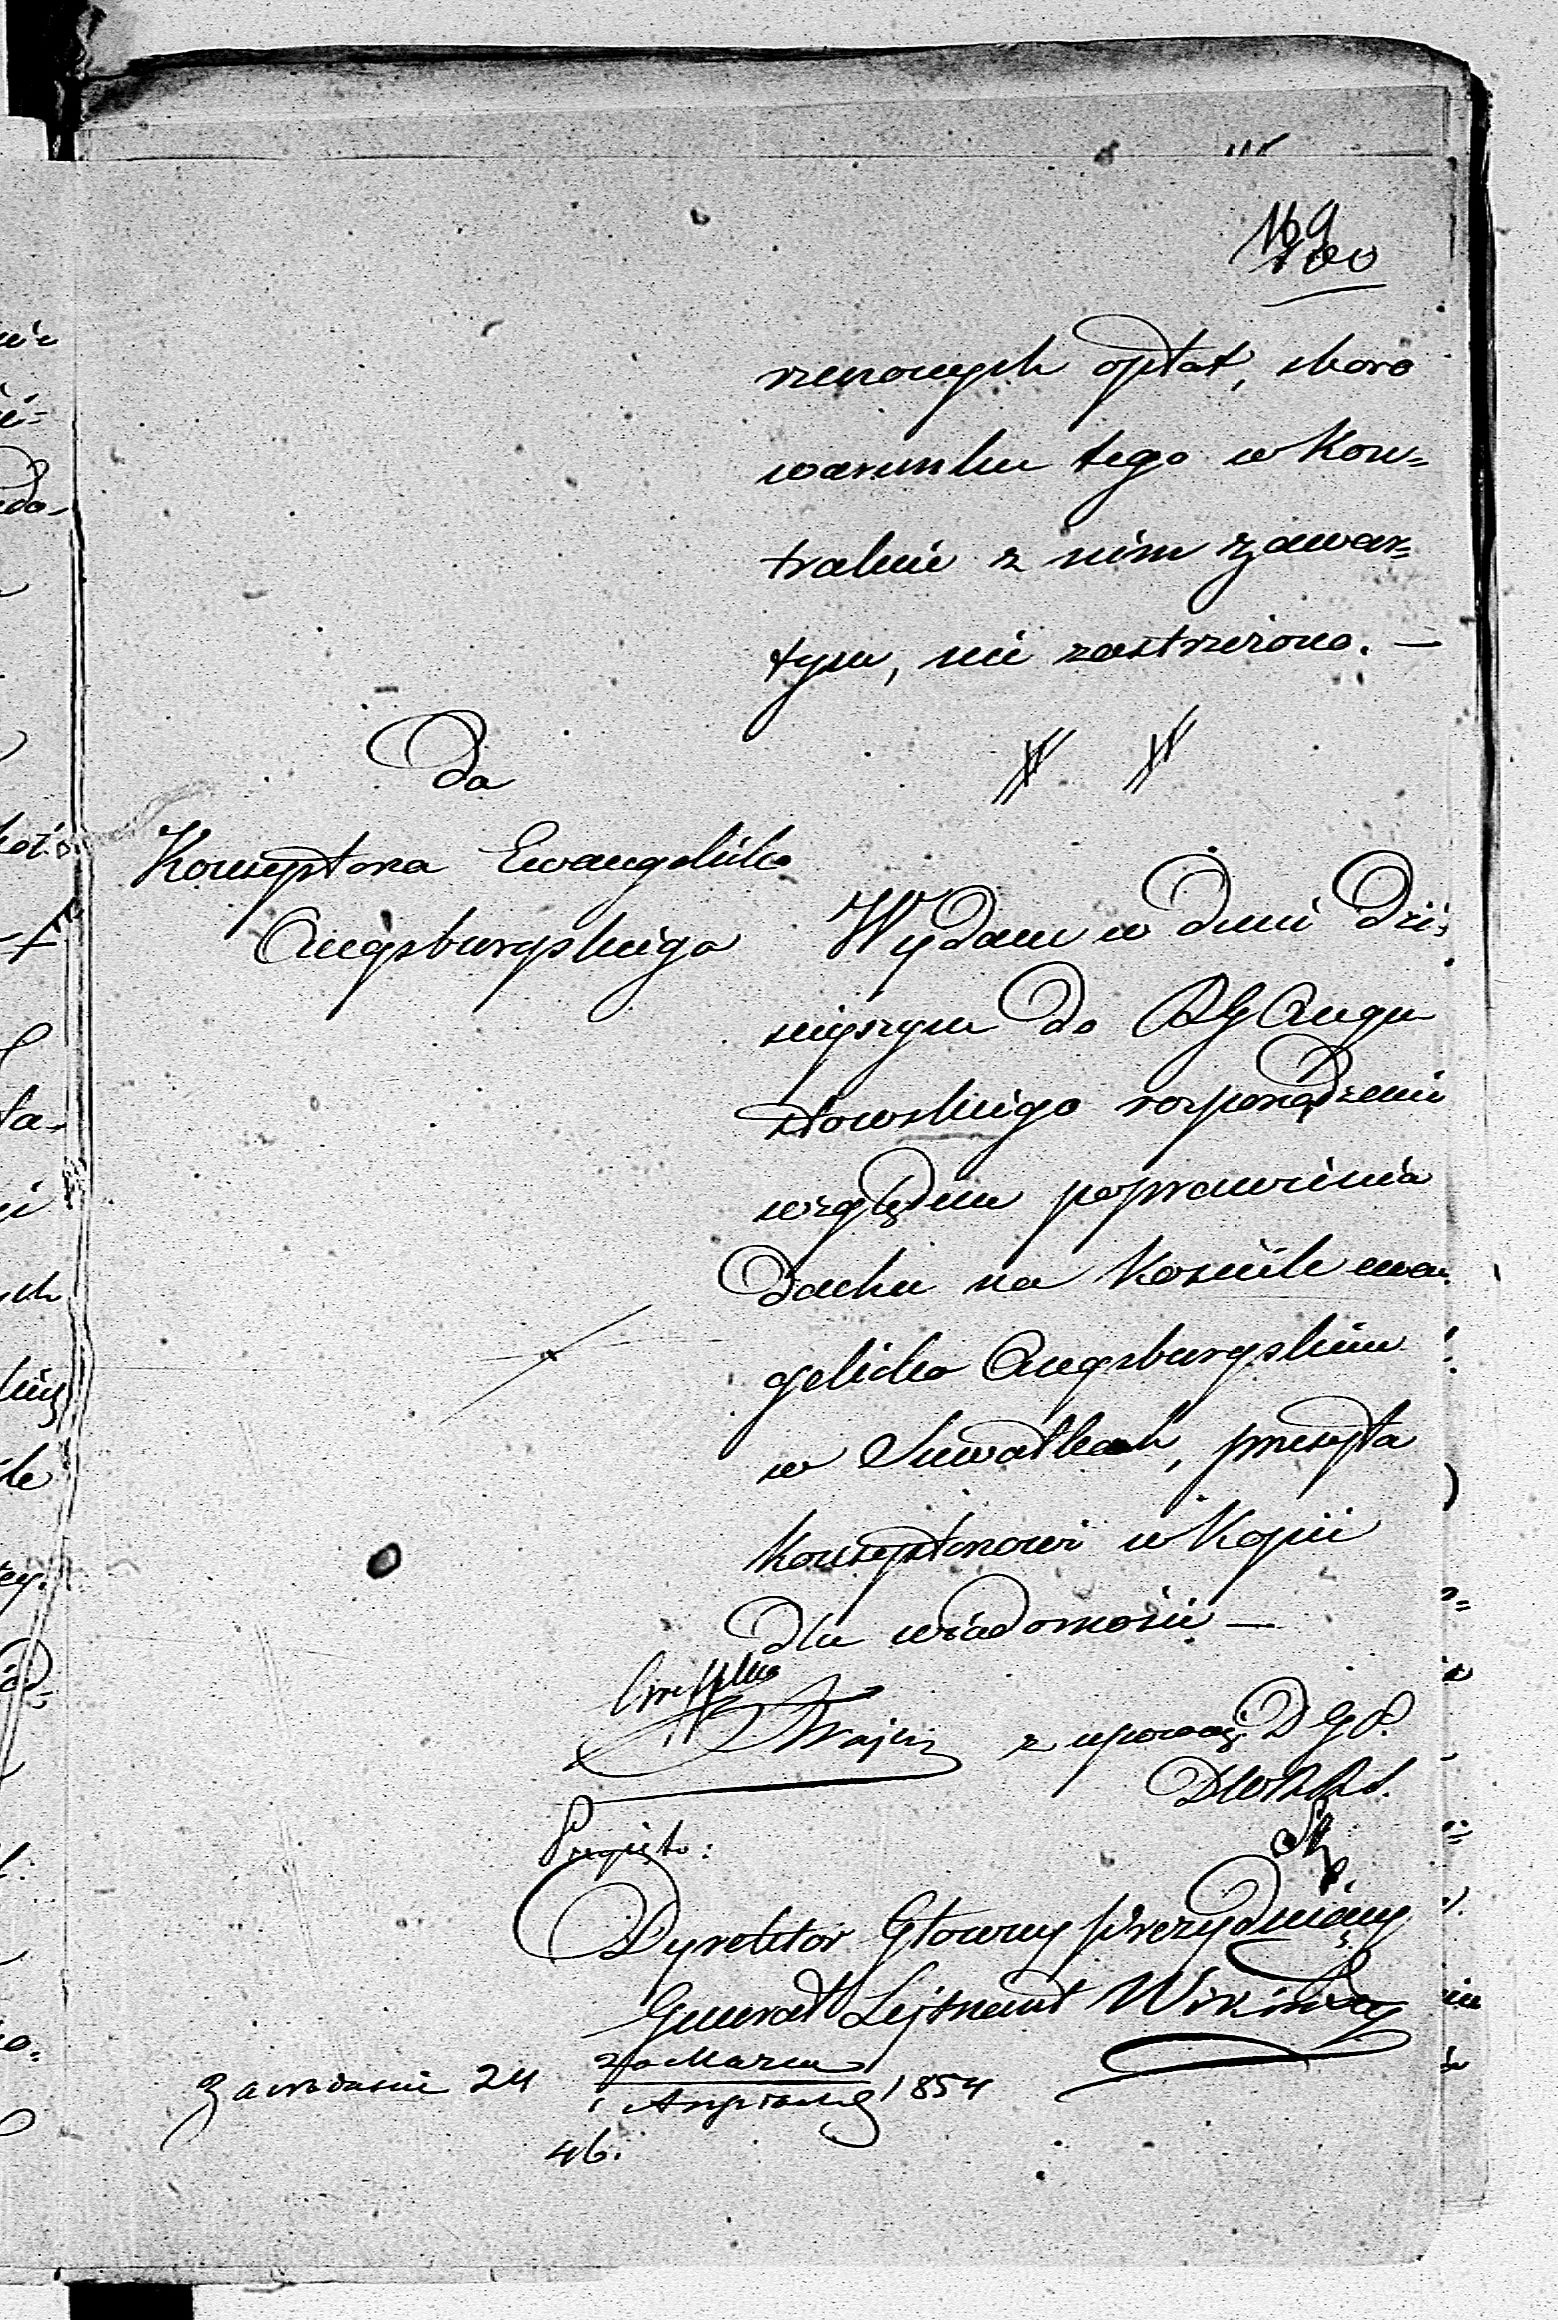 169
100
rzenowych opłat, skoro
warunku tego w Kon=
trakcie z nim zawar=
tym, nie zastrzeżono. —
Do
Konsystorza Ewangelicko
Augsburgskiego
Wydane w dniu dzi=
siejszym do RG Augu
stowskiego rozporządzenie
względem poprawienia
dachu na Kościele ewan
gelicko Augsburgskim
w Suwałkach, przesyła
Konsystorzowi w Kopii
dla wiadomości —
z upoważ. D G P.
Przyjęto:
Dyrektor Główny Prezydujący
Generał Lejtnant Wikiński
24 Marca
5 Kwietnia 1854
46.